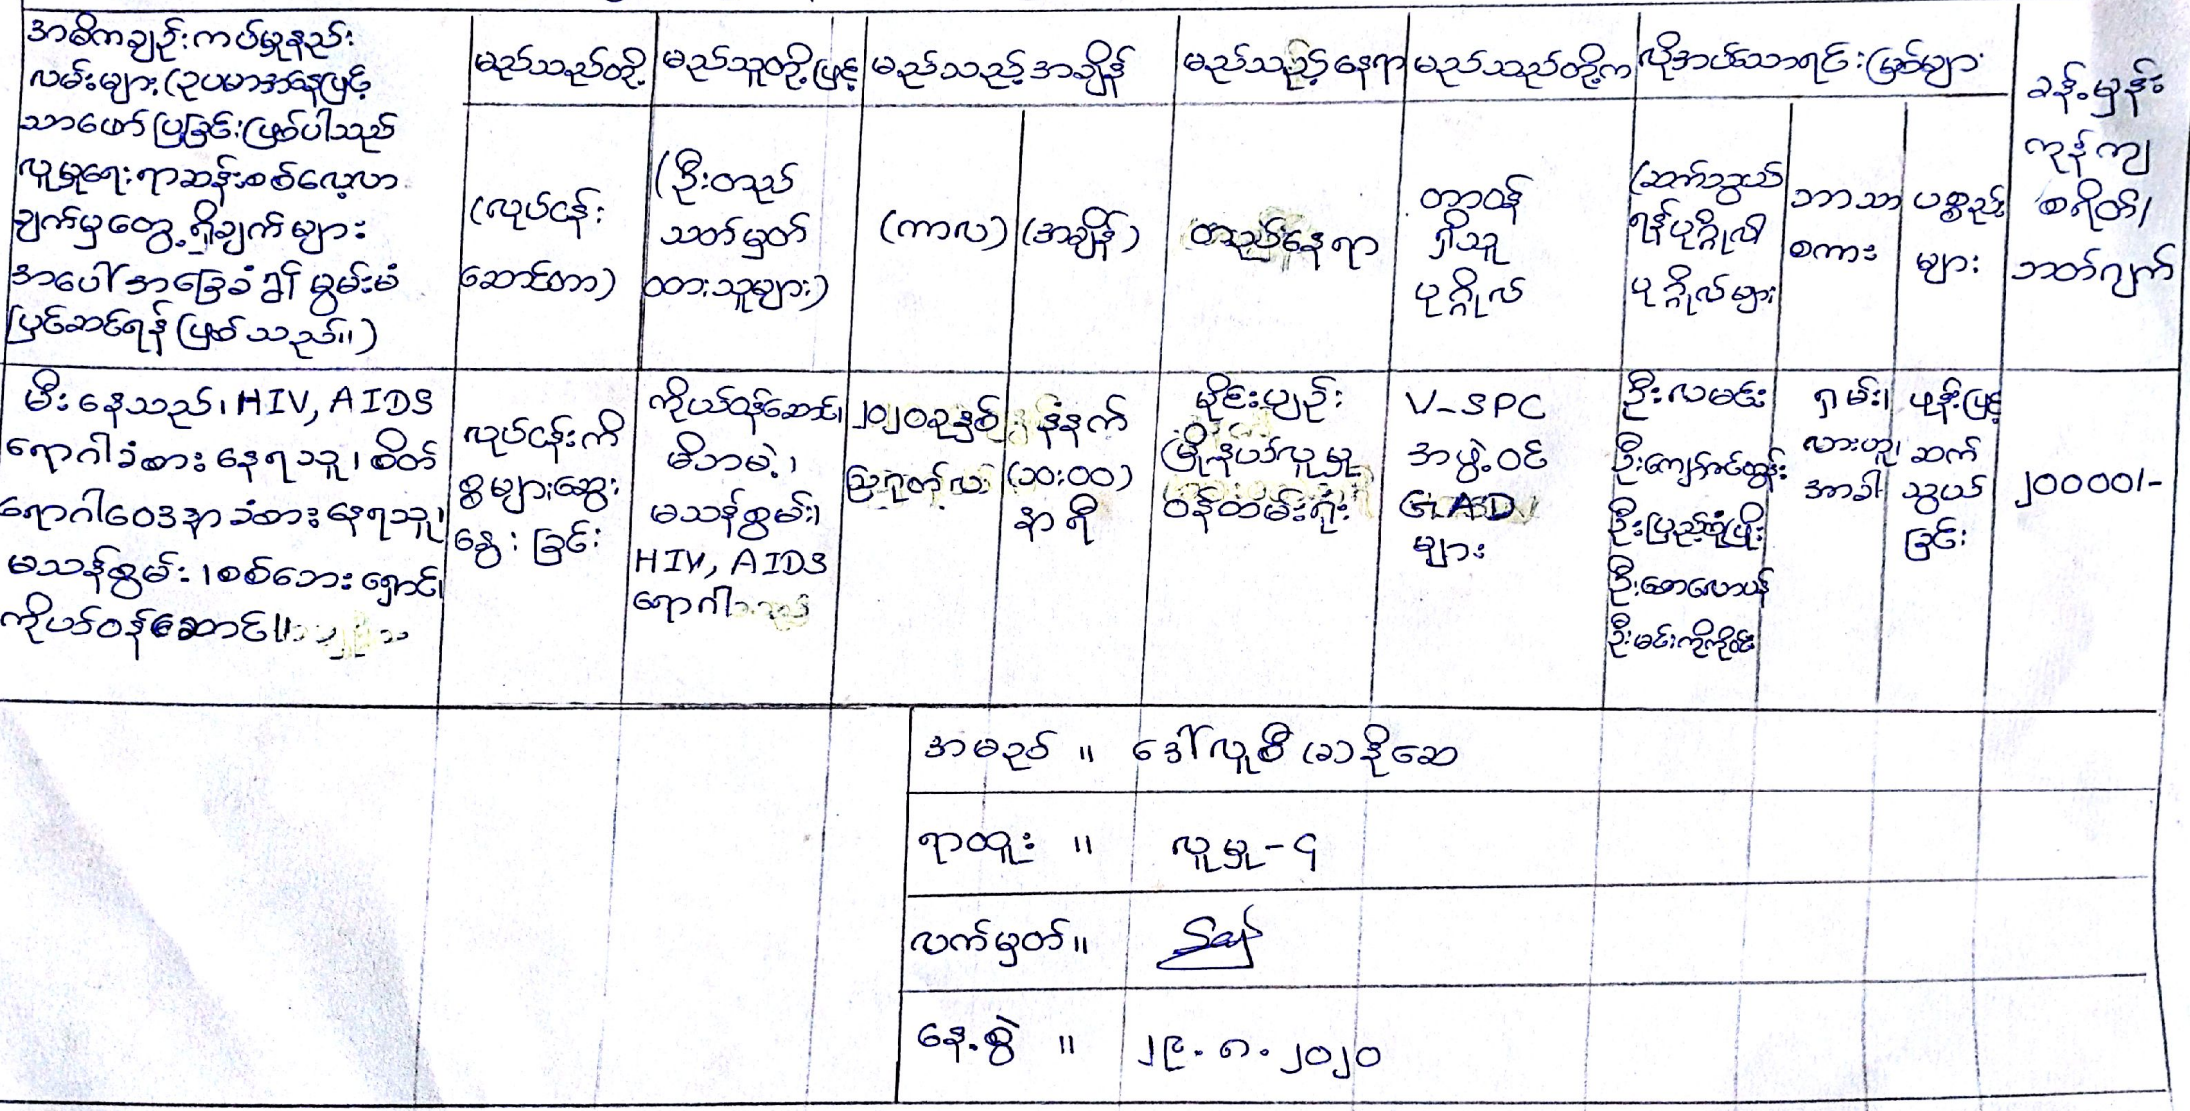 အဓိကချဉ်းကပ်မှုနည်း
လမ်းများ (ဥပမာအနေဖြင့်
သာဖော်ပြခြင်းဖြစ်ပါသည်
လူမှုရေးရာဆန်းစစ်လေ့လာ
ချက်မှတွေ့ရှိချက်များ
အပေါ်အခြေခံ၍ စွမ်းမံ
ပြင်ဆင်ရန် ဖြစ်သည်။)
မည်သည်တို့
(လုပ်ငန်း
ဆောင်တာ)
မည်သူတို့ဖြင့်
(ဦးတည်
သတ်မှတ်
ထားသူများ)
မည်သည့်အချိန်
(ကာလ) (အချိန်)
မည်သည့်နေရာ
တည်နေရာ
မည်သည်တို့က
တာဝန်
ရှိသူ
ပုဂ္ဂိုလ်
လိုအပ်သောရင်းမြစ်များ
(ဆက်သွယ်
ရန်ပုဂ္ဂိုလ်)
ပုဂ္ဂိုလ်များ
ဘာသာ
စကား
ပစ္စည်း
များ
ခန့်မှန်း
ကုန်ကျ
စရိတ်/
ဘတ်ဂျက်
မီးနေသည်၊ HIV, AIDS
ရောဂါခံစားနေရသူ၊ စိတ်
ရောဂါဝေဒနာခံစားနေရသူ၊
မသန်စွမ်း၊ စစ်ဘေးရှောင်၊
ကိုယ်ဝန်ဆောင်။
လုပ်ငန်းကိ
စ္စများဆွေး
နွေးခြင်း
ကိုယ်ဝန်ဆောင်၊
မိဘမဲ့၊
မသန်စွမ်း၊
HIV, AIDS
ရောဂါသည်
၂၀၂၀ခုနှစ်
ဩဂုတ်လ
နံနက်
(၁၀:၀၀)
နာရီ
မိုင်းပျဉ်း
မြို့နယ်လူမှု
ဝန်ထမ်းရုံး
V-SPC
အဖွဲ့ဝင်
GAD
များ
ဦးလမင်း
ဦးကျော်ဇင်ထွန်း
ဦးပြည့်စုံဖြိုး
ဦးစောလောပန်
ဦးမင်းကိုကိုဝင်း
ရှမ်း၊
လားဟူ၊
အာခါ
ဖုန်းဖြင့်
ဆက်
သွယ်
ခြင်း
၂၀၀၀၀/-
အမည် ။ ဒေါ်လူစီ (ခ) နိုဆေ
ရာထူး ။ လူမှု-၄
လက်မှတ်။
နေ့စွဲ ။ ၂၉.၈.၂၀၂၀